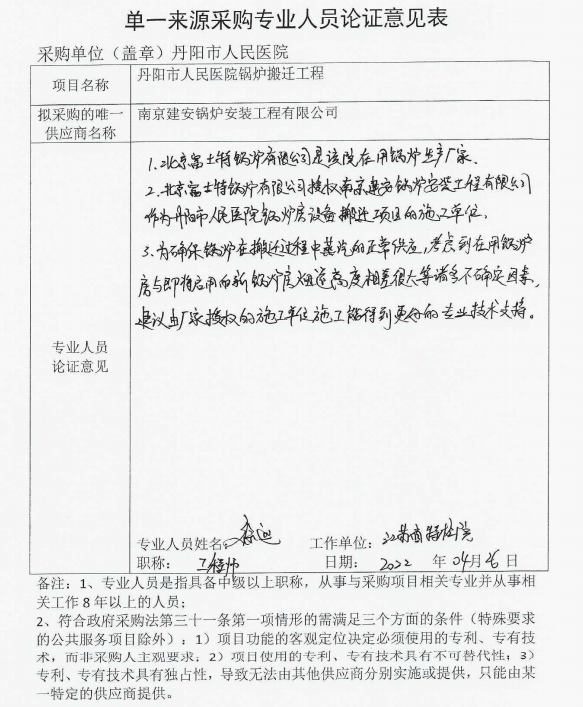 单一来源采购专业人员论证意见表
采购单位（盖章）丹阳市人民医院
项目名称
丹阳市人民医院锅炉搬迁工程
拟采购的唯一
供应商名称
南京建安锅炉安装工程有限公司
1.北京富士特锅炉有限公司是该院在用锅炉生产厂家.
2.北京富士特锅炉有限公司授权南京建安锅炉安装工程有限公司
作为丹阳市人民医院锅炉房设备搬迁项目的施工单位.
3.为确保锅炉在搬迁过程中蒸汽的正常供应,考虑到在用锅炉
房与即将启用的新锅炉房烟道高度相差很大等诸多不确定因素,
建议由厂家授权的施工单位施工能得到更好的专业技术支持。
专业人员
论证意见
专业人员姓名:
工作单位：江苏省特检院
职称： 工程师
日期： 2022 年 04月26日
备注：1、专业人员是指具备中级以上职称，从事与采购项目相关专业并从事相
关工作8年以上的人员；
2、符合政府采购法第三十一条第一项情形的需满足三个方面的条件（特殊要求
的公共服务项目除外）：1）项目功能的客观定位决定必须使用的专利、专有技
术，而非采购人主观要求；2）项目使用的专利、专有技术具有不可替代性；3）
专利、专有技术具有独占性，导致无法由其他供应商分别实施或提供，只能由某
一特定的供应商提供。